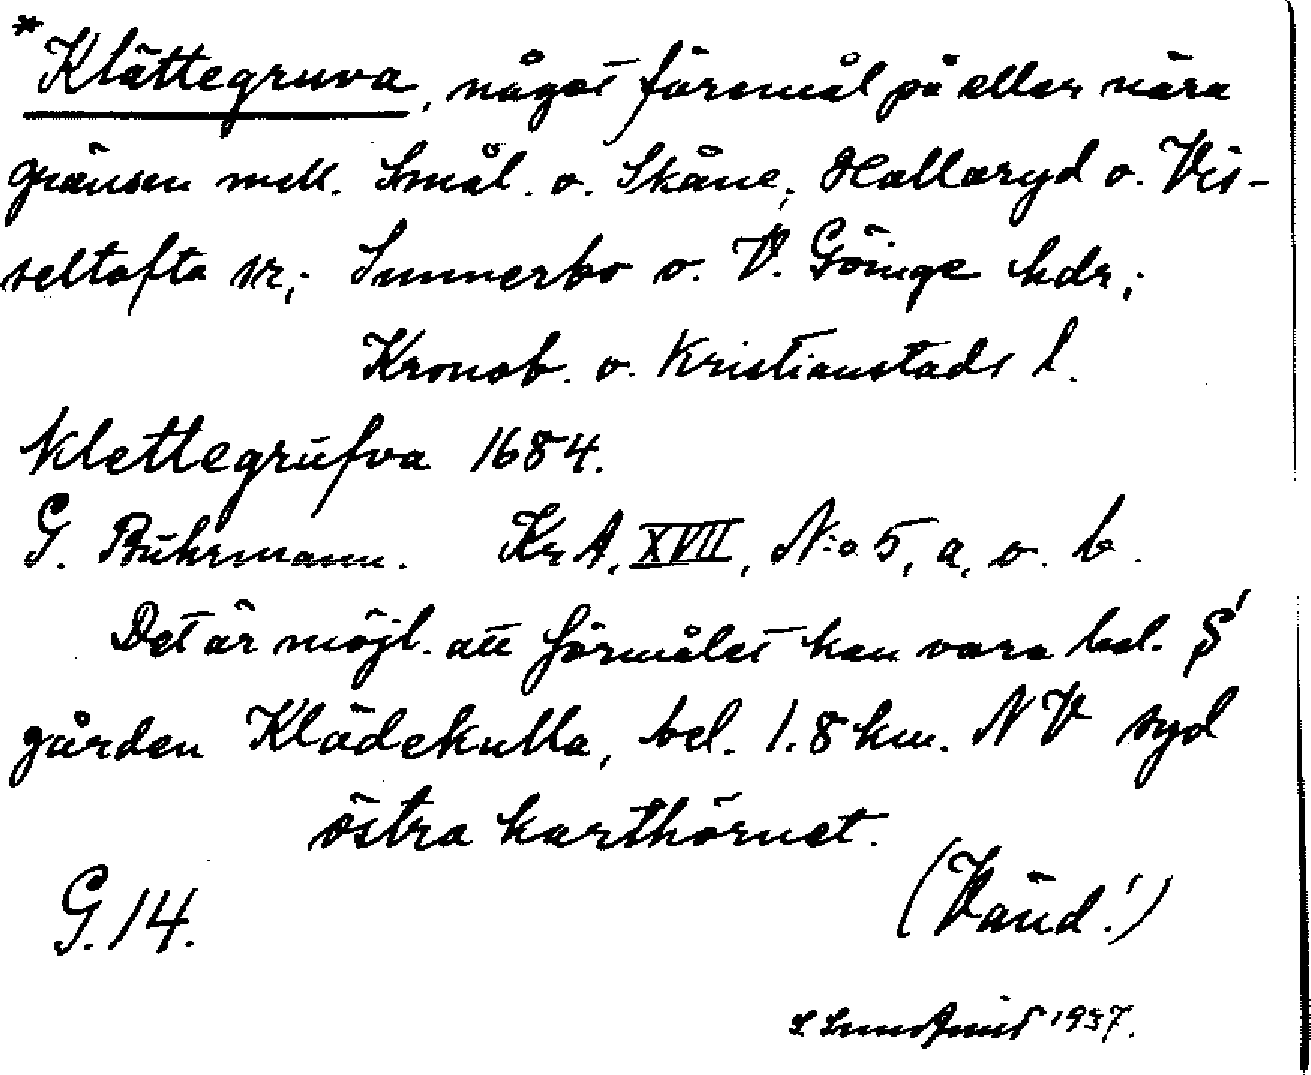 *Klättegruva, något föremål på eller nära
gränsen mell. Smål. o. Skåne; Hallaryd o. Vis-
seltofta sr.; Sunnerbo o. V. Göinge hdr.;
Kronob. o. Kristianstads l.
Klettegrufva 1684.
G. Buhrmann. Kr A, XVII, N:o 5, a, o. b.
Det är möjl. att föremålet kan vara bel. S'
gården Klädekulla, bel. 1.8 km. NV syd
östra karthörnet.
G. 14. (Vänd!)
1937.